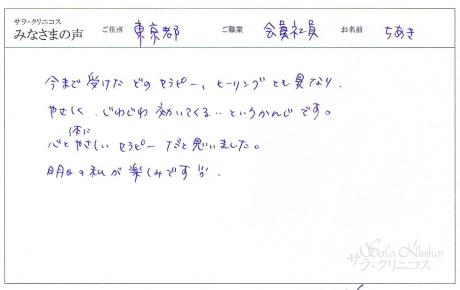 サラ・クリニコス
みなさまの声 ご住所 東京都 ご職業 会員社員 お名前 ちあき
今まで受けたどのセラピー、ヒーリングとも異なり、
やさしく、じわじわ効いてくる‥というかんじです。
体に
心とやさしいセラピーだと思いました。
明日の私が楽しみです!!
Sala Klinikos
サラ・クリニコス